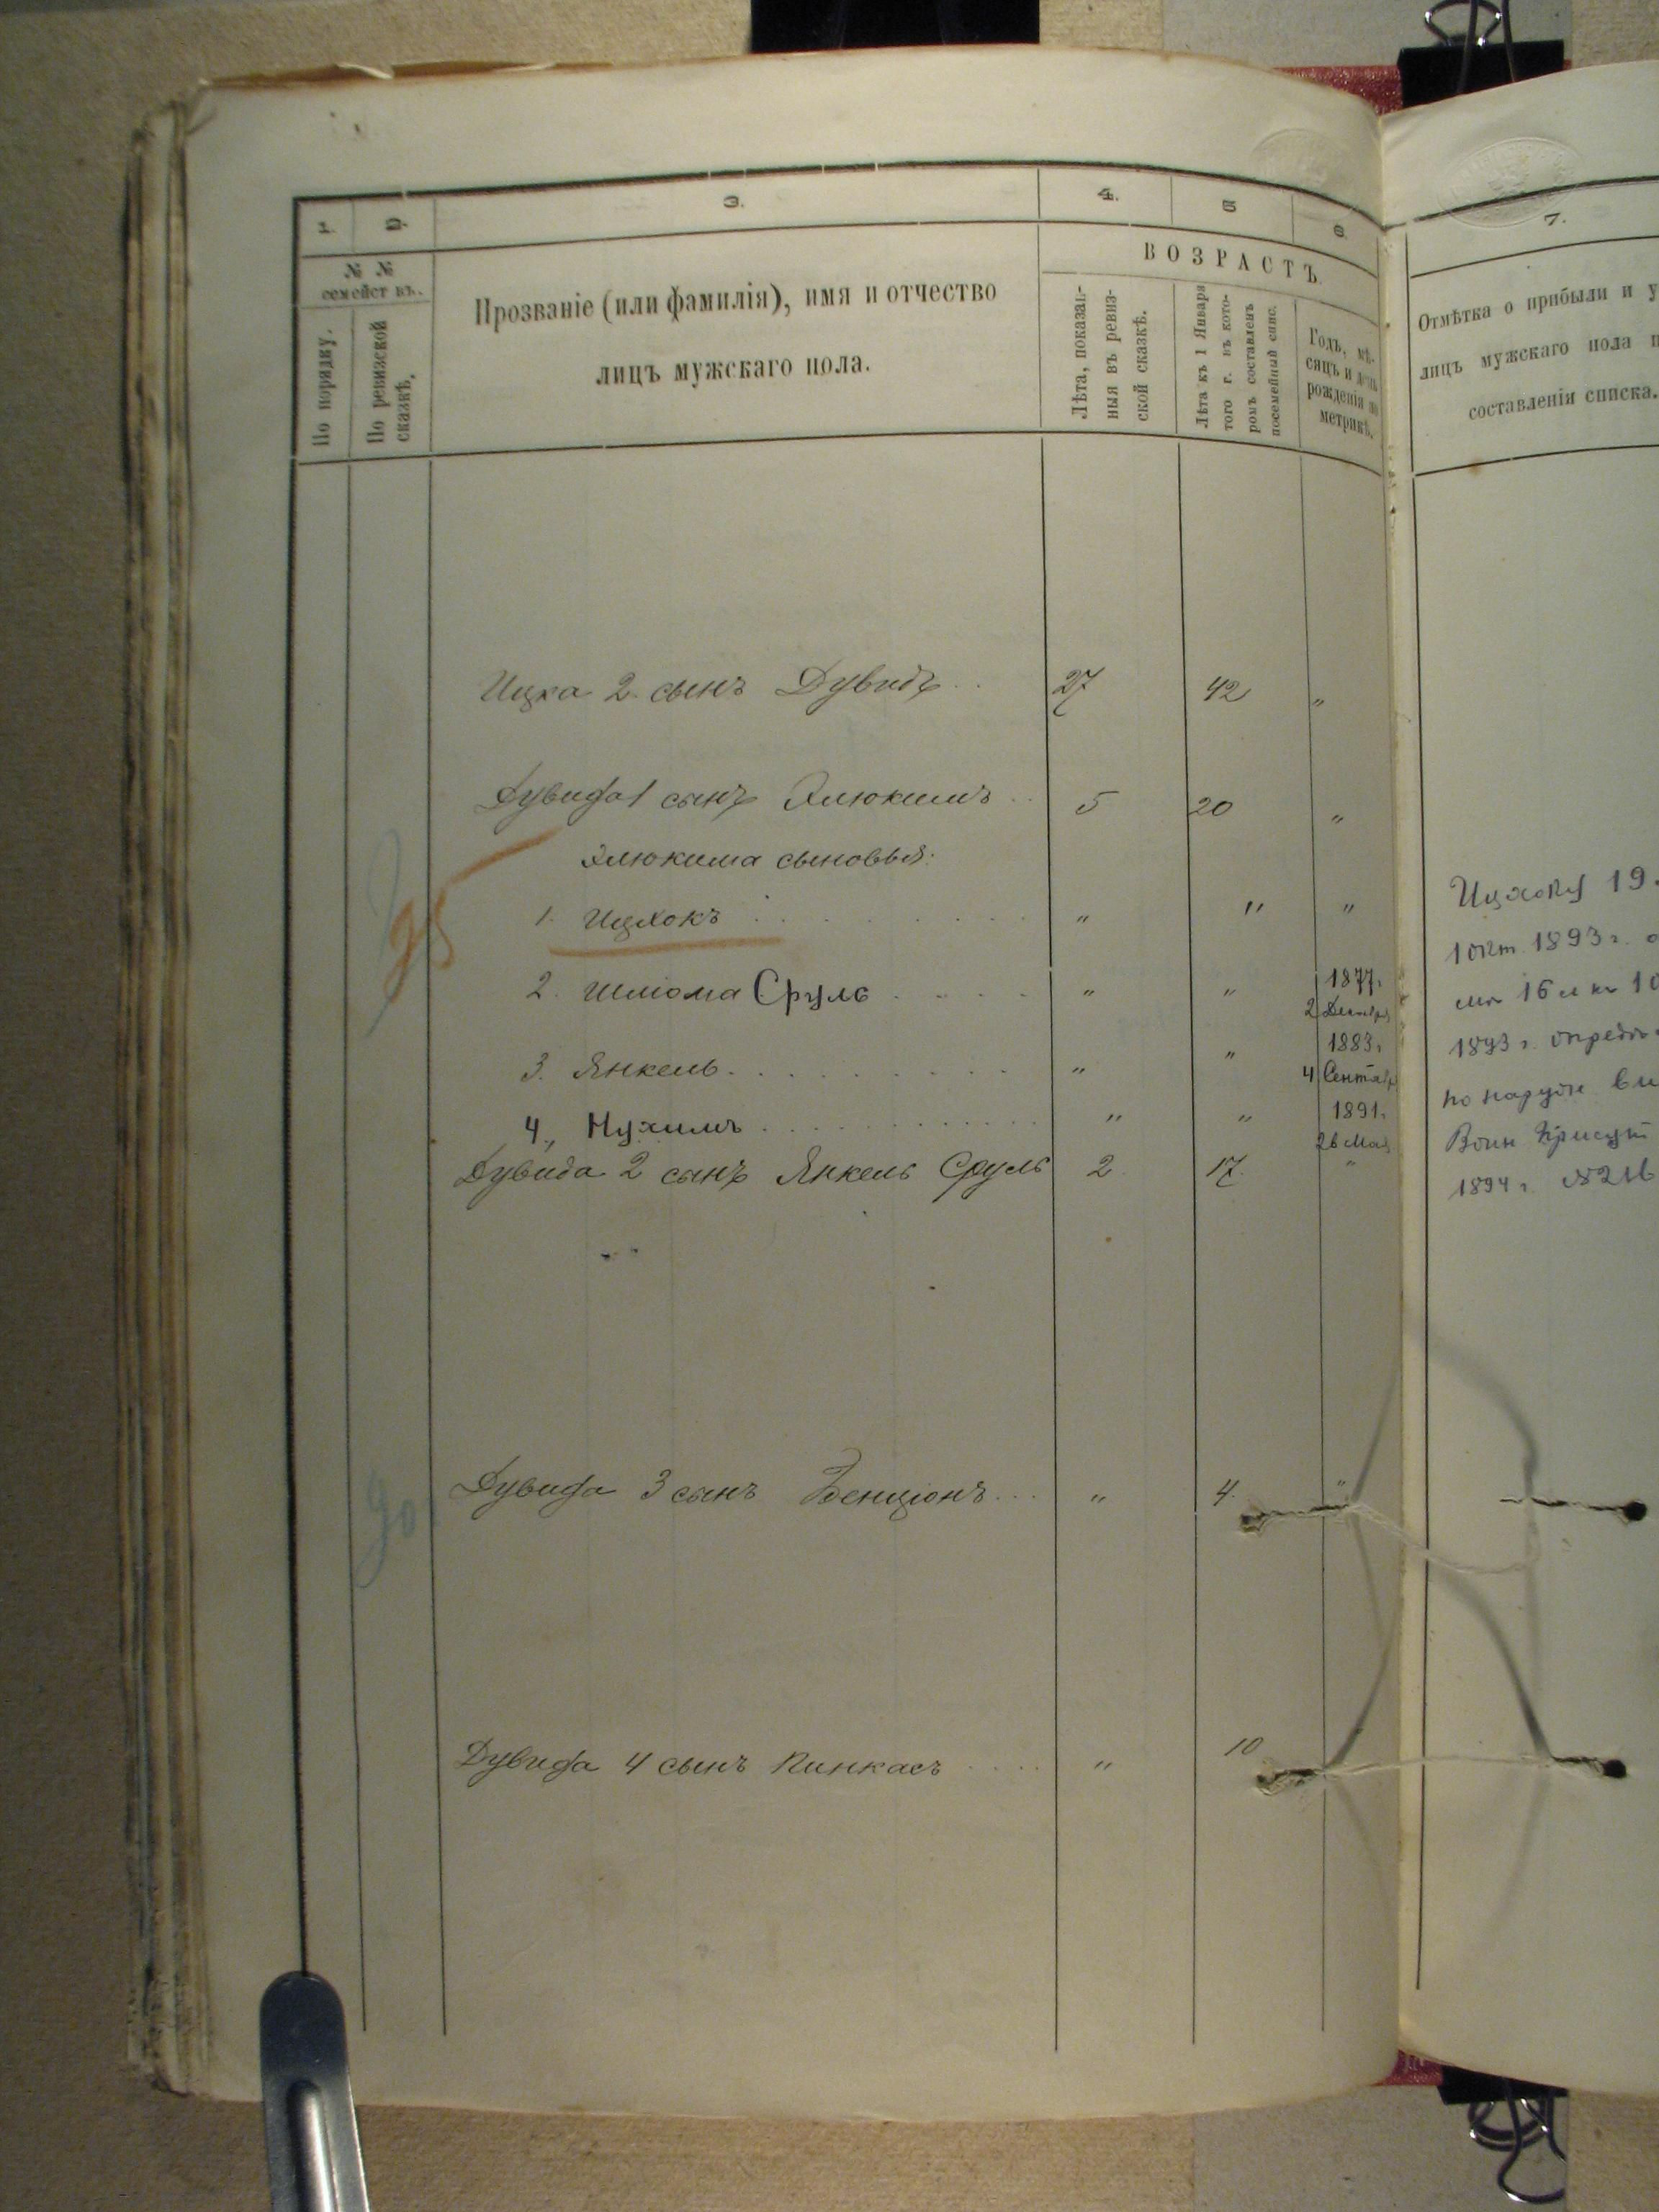 1. 2. 3. 4. 5 6. 7.
№ №
семействъ.
По порядку.
По ревизской
сказкѣ.
Прозваніе (или фамилія), имя и отчество
лицъ мужскаго пола.
ВОЗРАСТЪ.
Лѣта, показан-
ныя въ ревиз-
ской сказкѣ.
Лѣта къ 1 Января
того г. въ кото-
ромъ составленъ
посемейный спис.
Годъ, мѣ-
сяцъ и день
рожденія по
метрикѣ.
Отмѣтка о прибыли и у
лицъ мужскаго пола п
составленія списка.
Ицка 2 сынъ Дувидъ 27 42 "
Дувида 1 сынъ Элюкимъ 5 20 "
Элюкима сыновья:
1. Ицхокъ " " "
2. Шлiома Сруль " " 1877 г. 2 Декабря
3. Янкель " " 1883 г. 4 Сентяб
4., Нухимъ " " 1891 г. 26 Мая
Дувида 2 сынъ Янкель Сруль 2 17 "
95
Дувида 3 сынъ Бенціонъ " 4 "
90
Дувида 4 сынъ Пинкасъ " 10
Ицхоку 19
1 окт 1893 г.
16 10
1893 г. опредѣ
по наруж
Воин Присут
1894 г. №